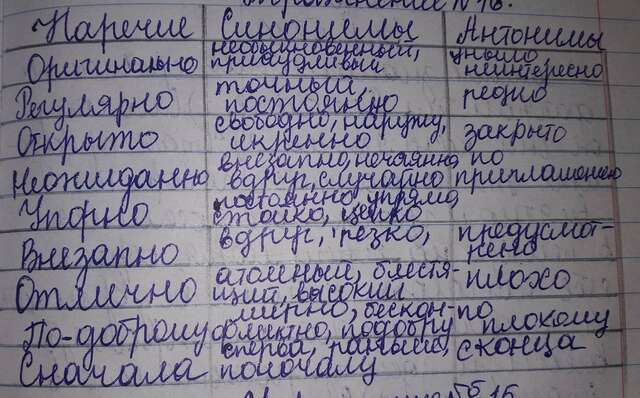 Упражнение №16.
Наречие Синонимы Антонимы
необыкновенный, уныло
Оригинально причудливый неинтересно
точный,
Регулярно постоянно редко
свободно, наружу,
Открыто искренно закрыто
внезапно, нечаянно по
Неожиданно вдруг, случайно приглашению
постоянно, упрямо,
Упорно стойко, цепко
вдруг, резко, предусмот-
Внезапно рено
атоменый, блестя- плохо
Отлично щий, высокий
мирно, бескон- по
По-доброму фликтно, подобру плохому
сперва, раньше, сконца
Сначала поночалу
№ 15